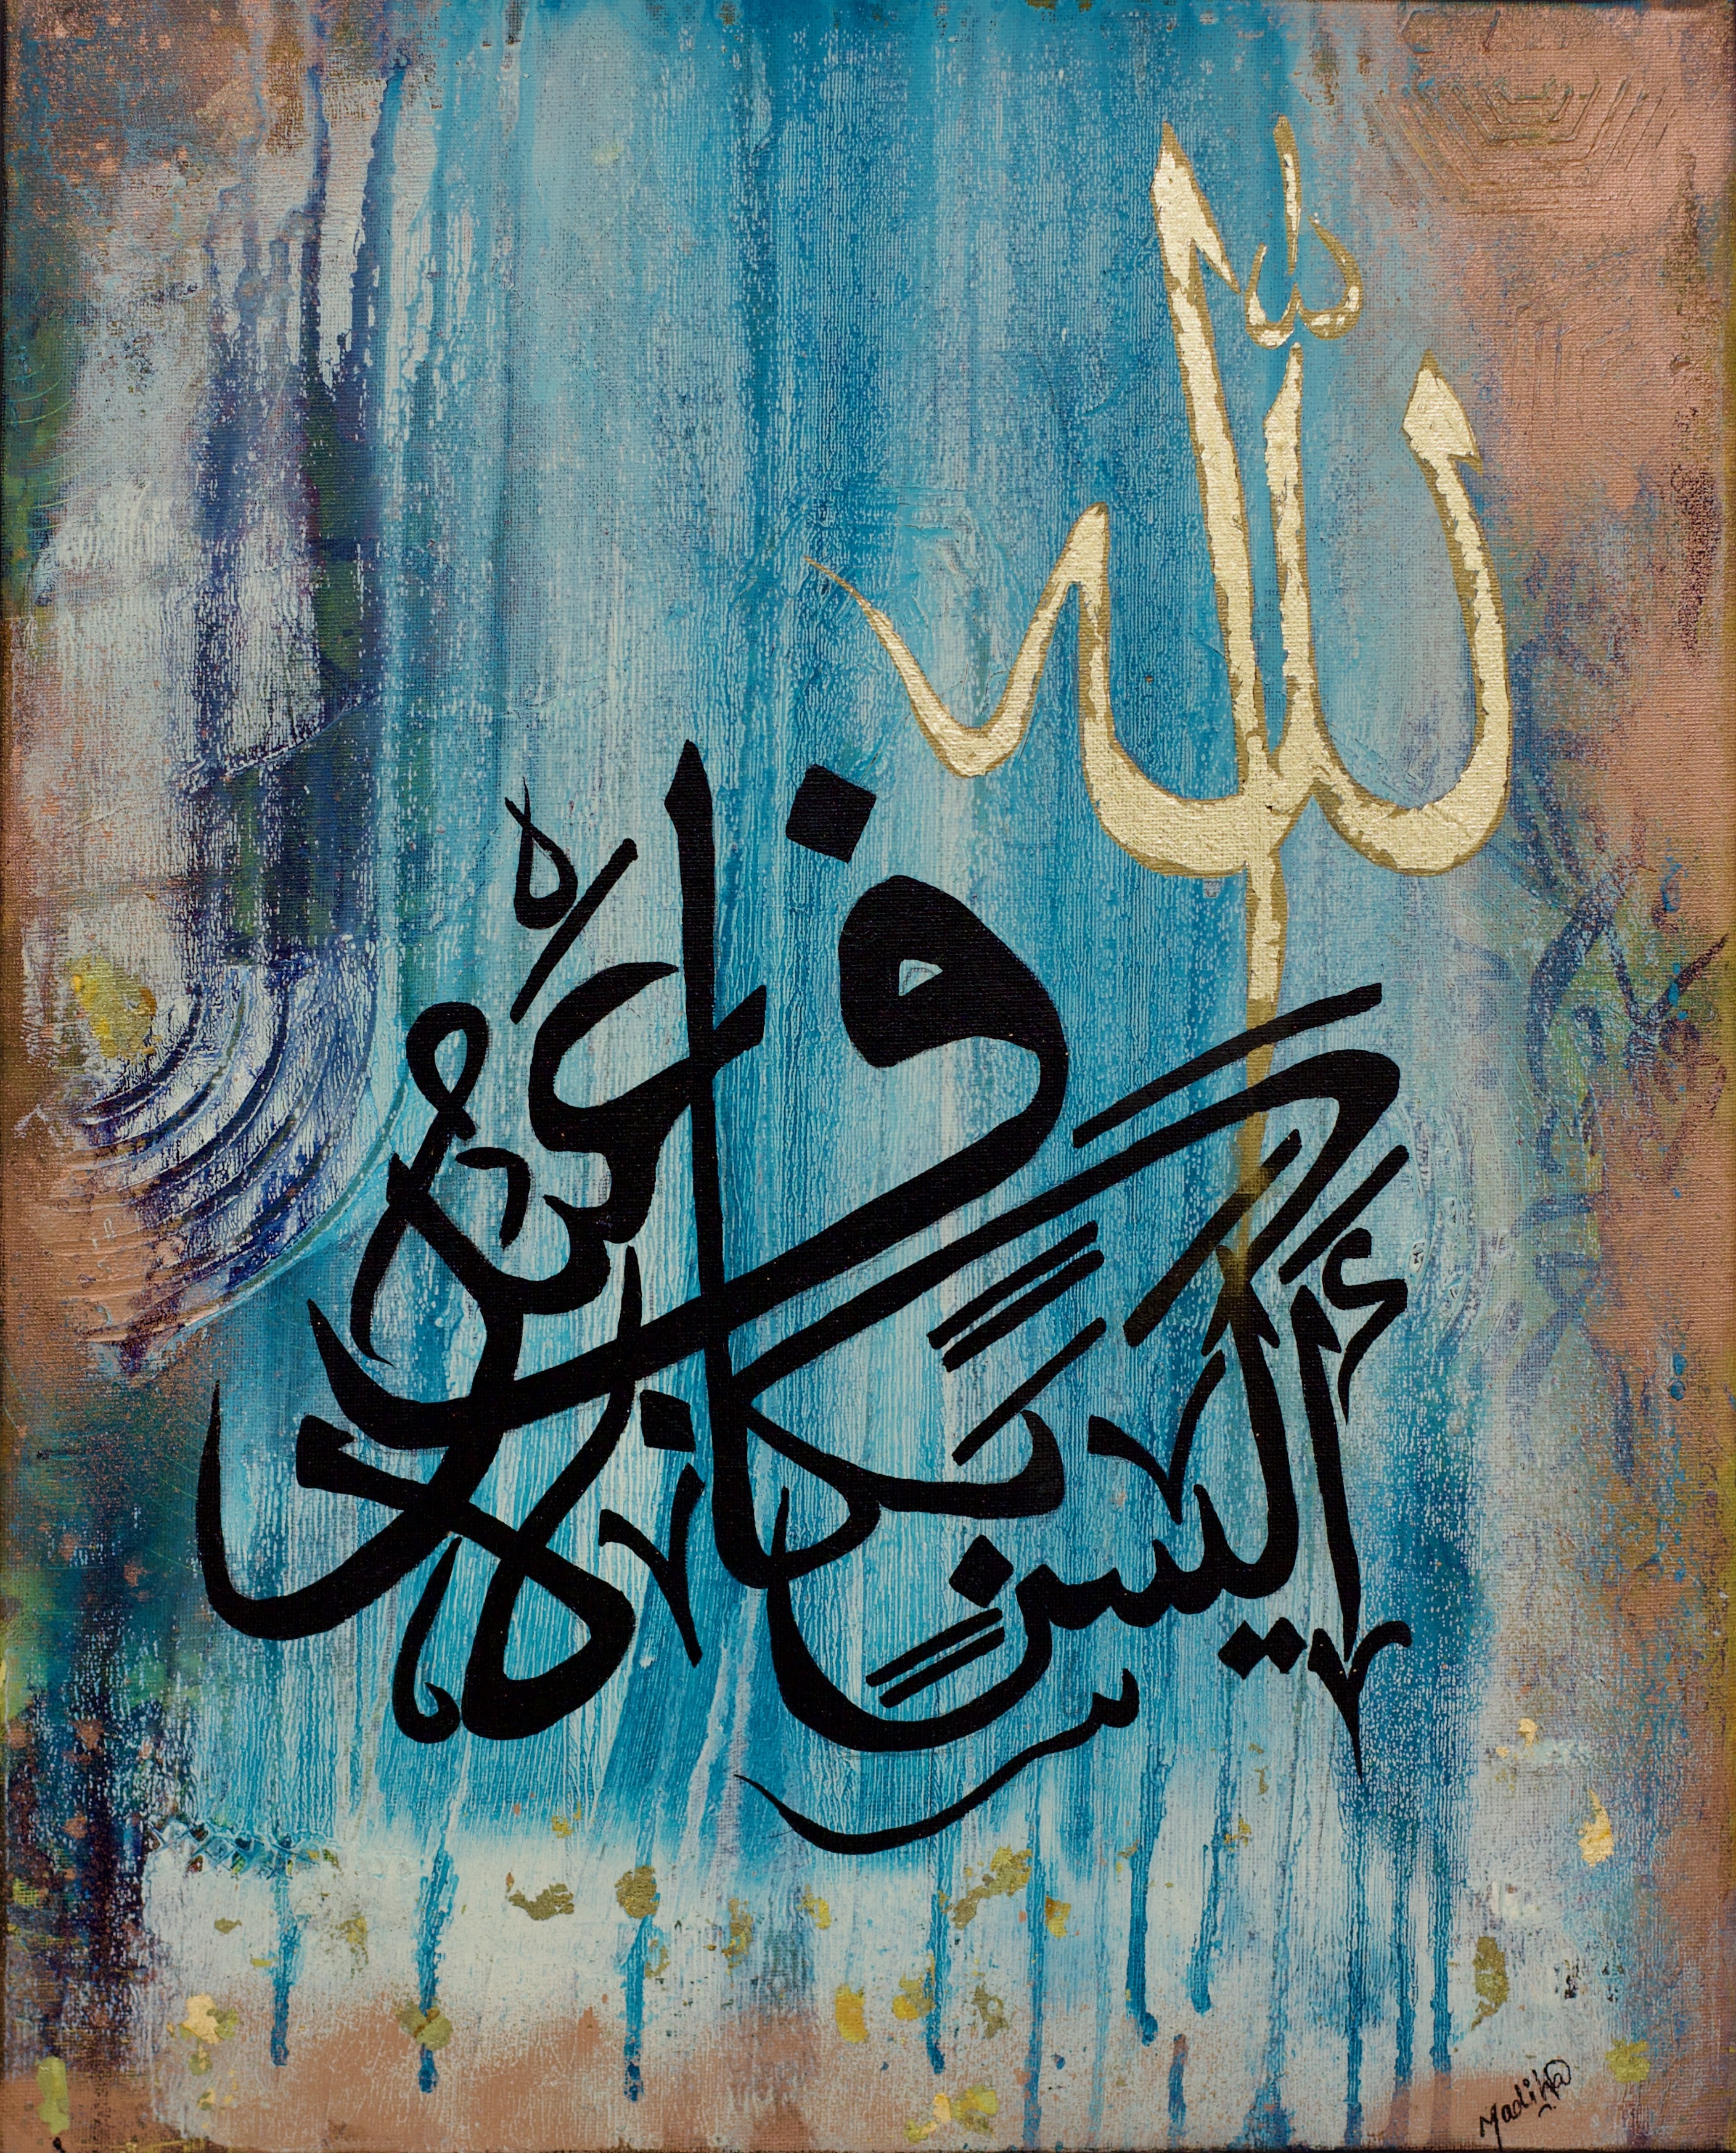 أَلَيْسَ اللّٰه بِكَافٍ عَبْدَهُ
Madiha